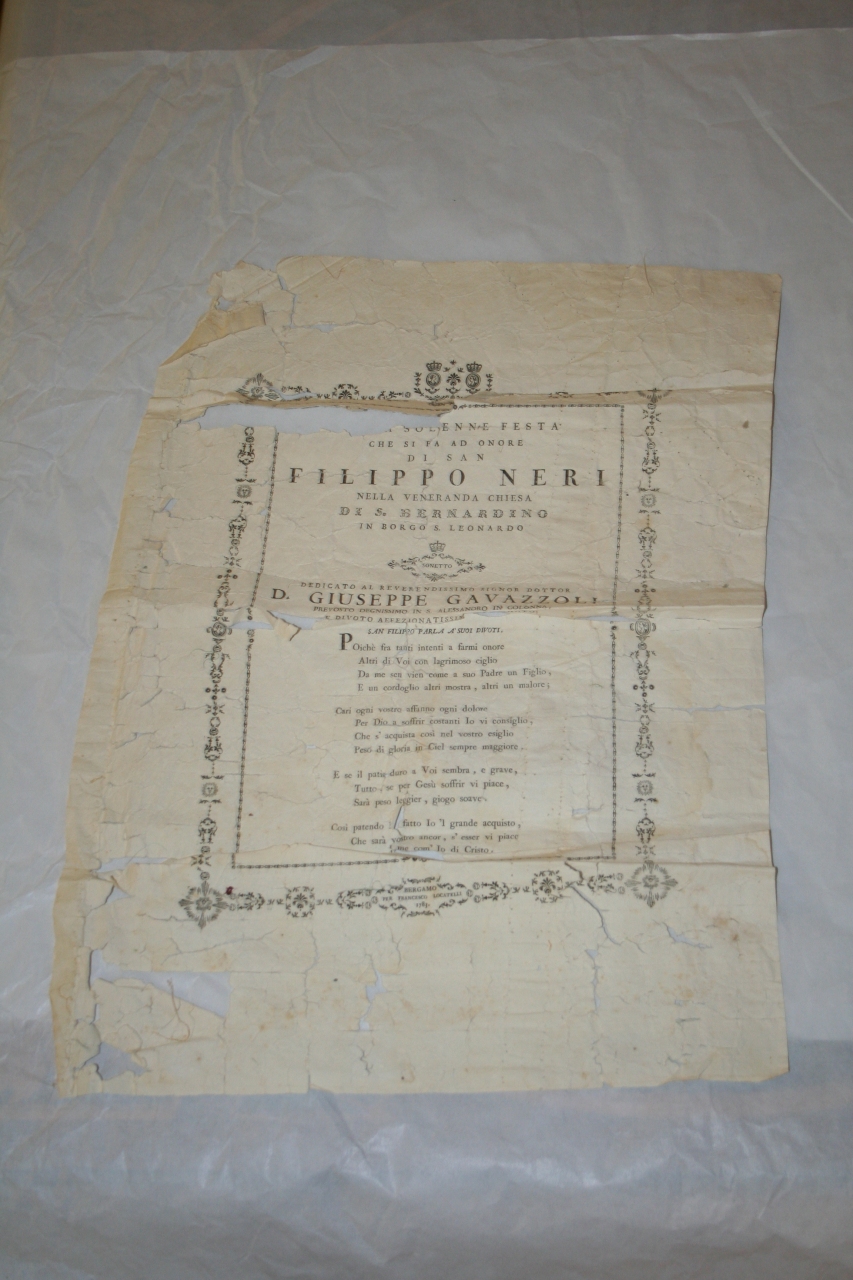 SOLENNE FESTA
CHE SI FA AD ONORE
DI SAN
FILIPPO NERI
NELLA VENERANDA CHIESA
DI S. BERNARDINO
IN BORGO S. LEONARDO
SONETTO
DEDICATO AL REVERENDISSIMO SIGNOR DOTTOR
D. GIUSEPPE GAVAZZOLI
PREVOSTO DEGNISSIMO IN S. ALESSANDRO IN
E DIVOTO
SAN FILIPPO PARLA A' SUOI DIVOTI.
Poichè fra tanti intenti a farmi onore
Altri di Voi con lagrimoso ciglio
Da me sen vien come a suo Padre un Figlio,
E un cordoglio altri mostra, altri un malore;
Cari ogni vostro affanno ogni dolore
Per Dio a soffrir costanti Io vi consiglio,
Che s' acquista così nel vostro esiglio
Pesci di gloria in Ciel sempre maggiore.
E se il patir duro a Voi sembra, e grave,
Tutto, se per Gesù soffrir vi piace,
Sarà peso leggier, giogo soave.
Così patendo fatto Io 'l grande acquisto,
Che sarà vostro ancor, s' esser vi piace
com' Io di Cristo.
BERGAMO
PER FRANCESCO LOCATELLI